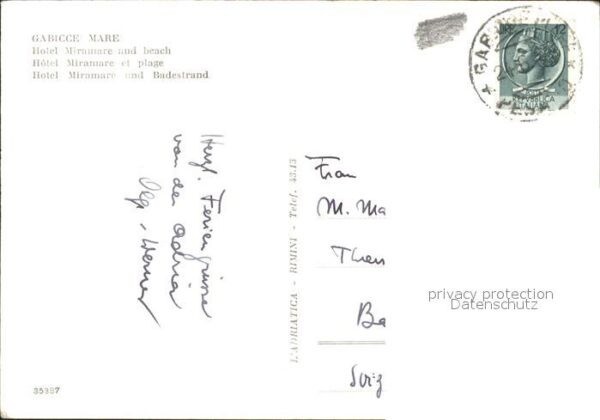 GABICCE MARE
Hotel Miramare and beach
Hôtel Miramare et plage
Hotel Miramare und Badestrand
12
REPUBBLICA
ITALIANA
Herzl. Feriengrüsse
von der Adria
Olga + Werner
L'ADRIATICA - RIMINI - Telef. 43.15
Frau
M. Ma
Ba
privacy protection
Datenschutz
35397